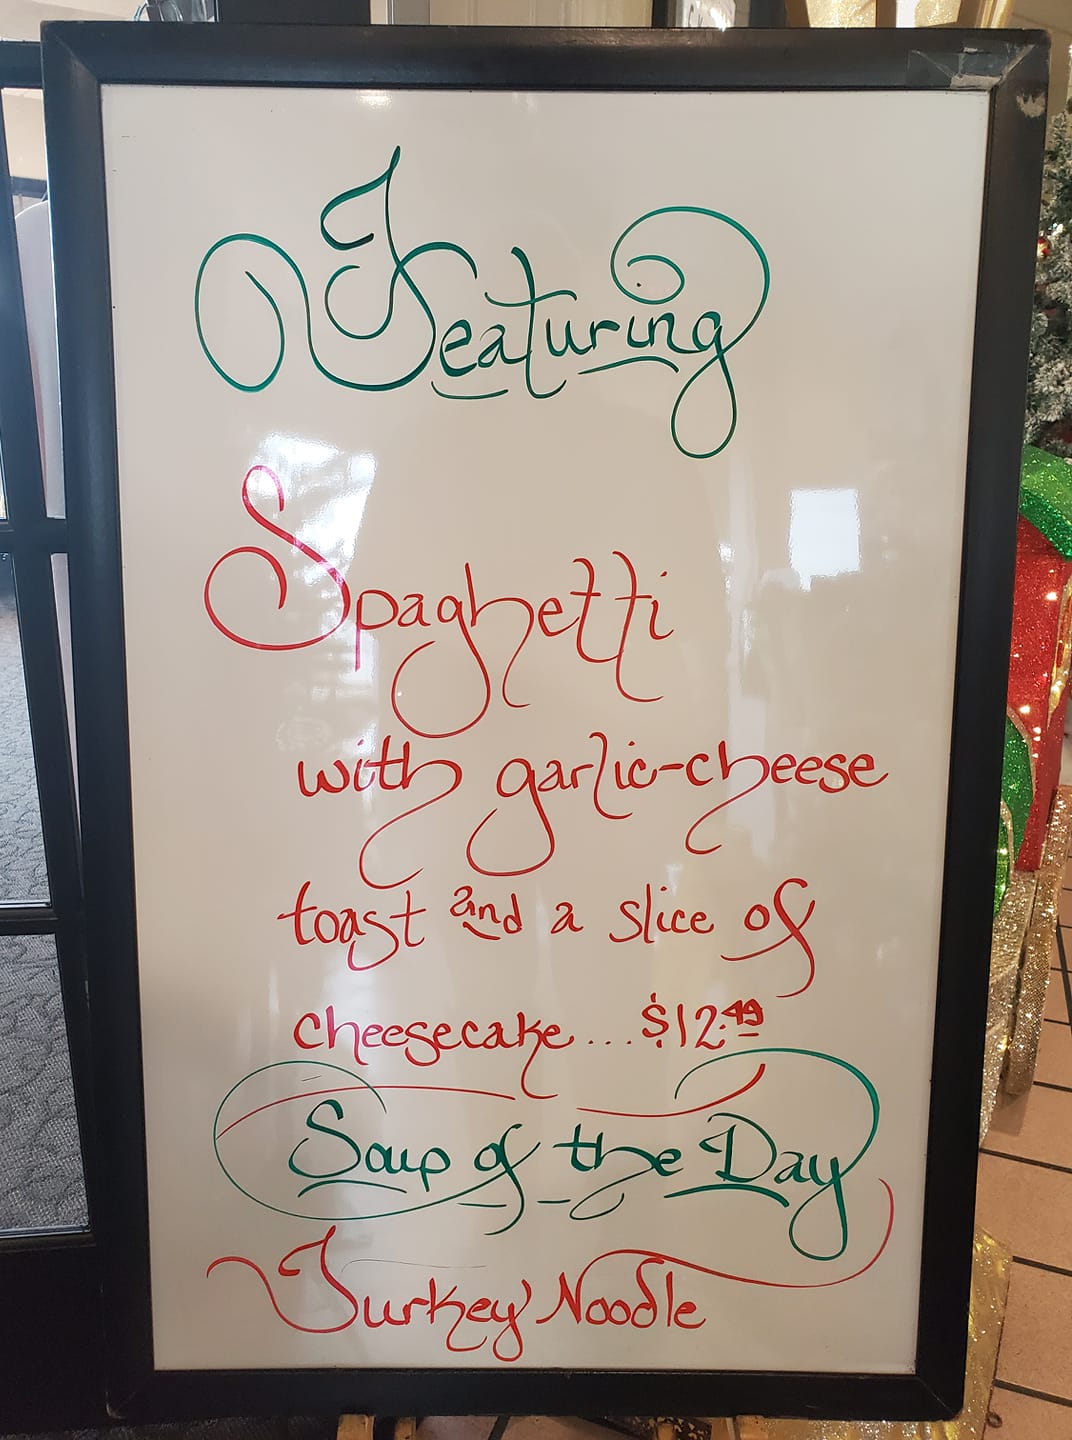 Featuring
Spaghetti
with garlic-cheese
toast and a slice of
cheesecake...$12.49
Soup of the Day
Turkey Noodle